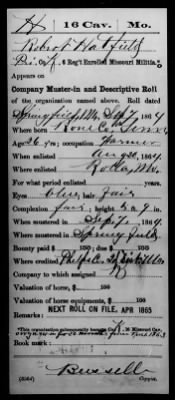 H | 16 Cav. | Mo.
Robert Hatfield
Pri., Co. K, 6 Reg't Enrolled Missouri Militia.*
Appears on
Company Muster-in and Descriptive Roll
of the organization named above. Roll dated
Springfield, Mo. Sept 7, 1864
Where born Roane Co. Tenn.
Age 26 y'rs; occupation Farmer
When enlisted Aug 20, 1864.
Where enlisted Rolla, Mo.
For what period enlisted years.
Eyes blue; hair fair
Complexion fair; height 5 ft. 9 in.
When mustered in Sept. 7, 1864
Where mustered in Springfield
Bounty paid $ 100; due $ 100
Where credited Phelps Co.
To which company assigned K
Valuation of horse, $ 100
Valuation of horse equipments, $ 100
Remarks: NEXT ROLL ON FILE, APR 1865
*This organization subsequently became Co. K, 16 Missouri Cav.
Book mark:
Russell
(354d) Copyist.